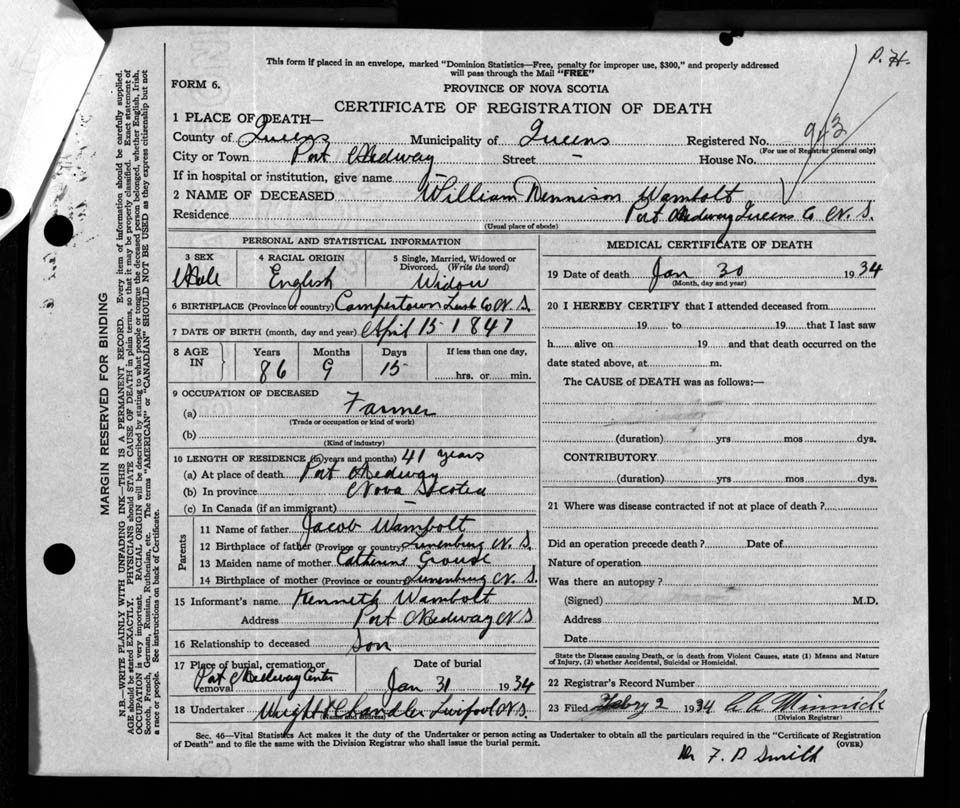 D. H.
This form if placed in an envelope, marked "Dominion Statistics—Free, penalty for improper use, $300," and properly addressed
will pass through the Mail "FREE"
FORM 6.
PROVINCE OF NOVA SCOTIA
CERTIFICATE OF REGISTRATION OF DEATH
1 PLACE OF DEATH—
County of Queens Municipality of Queens Registered No. 913
(For use of Registrar General only)
City or Town Port Medway Street - House No.
If in hospital or institution, give name -
2 NAME OF DECEASED William Dennison Wambolt
Residence Port Medway Queens Co N. S.
(Usual place of abode)
PERSONAL AND STATISTICAL INFORMATION
3 SEX Male
4 RACIAL ORIGIN English
5 Single, Married, Widowed or Divorced. (Write the word) Widow
6 BIRTHPLACE (Province or country) Campertown Lunb Co N. S.
7 DATE OF BIRTH (month, day and year) April 15 1847
8 AGE IN Years 86 Months 9 Days 15 If less than one day, hrs. or min.
9 OCCUPATION OF DECEASED
(a) Farmer
(Trade or occupation or kind of work)
(b)
(Kind of industry)
10 LENGTH OF RESIDENCE (in years and months) 41 years
(a) At place of death Port Medway
(b) In province Nova Scotia
(c) In Canada (if an immigrant) -
Parents
11 Name of father Jacob Wambolt
12 Birthplace of father (Province or country) Lunenburg N. S.
13 Maiden name of mother Catherine Grouse
14 Birthplace of mother (Province or country) Lunenburg N. S.
15 Informant's name Kenneth Wambolt
Address Port Medway N S
16 Relationship to deceased Son
17 Place of burial, cremation or removal Port Medway Cemty
Date of burial Jan 31 1934
18 Undertaker Wright & Chandler Liverpool N. S.
(Name and address)
MEDICAL CERTIFICATE OF DEATH
19 Date of death Jan 30 1934
(Month, day and year)
20 I HEREBY CERTIFY that I attended deceased from
19 to 19 that I last saw
h alive on 19 and that death occurred on the
date stated above, at m.
The CAUSE of DEATH was as follows:—
(duration) yrs mos dys.
CONTRIBUTORY
(duration) yrs. mos. dys.
21 Where was disease contracted if not at place of death?
Did an operation precede death? Date of
Nature of operation
Was there an autopsy?
(Signed) M.D.
Address
Date
State the Disease causing Death, or in death from Violent Causes, state (1) Means and Nature
of Injury, (2) whether Accidental, Suicidal or Homicidal.
22 Registrar's Record Number
23 Filed Febry 2 1934 C C Minnick
(Division Registrar)
Sec. 46—Vital Statistics Act makes it the duty of the Undertaker or person acting as Undertaker to obtain all the particulars required in the "Certificate of Registration
of Death" and to file the same with the Division Registrar who shall issue the burial permit.
(OVER)
Dr F. D Smith
MARGIN RESERVED FOR BINDING
N.B.—WRITE PLAINLY WITH UNFADING INK—THIS IS A PERMANENT RECORD. Every item of information should be carefully supplied.
AGE should be stated EXACTLY. PHYSICIANS should STATE CAUSE OF DEATH in plain terms, so that it may be properly classified. Exact statement of
OCCUPATION is very important. RACIAL ORIGIN will be described by stating to what people or tongue the deceased person belonged, whether English, Irish,
Scotch, French, German, Russian, Ruthenian, etc. The terms "AMERICAN" or "CANADIAN" SHOULD NOT BE USED as they express citizenship but not
a race or people. See instructions on back of Certificate.